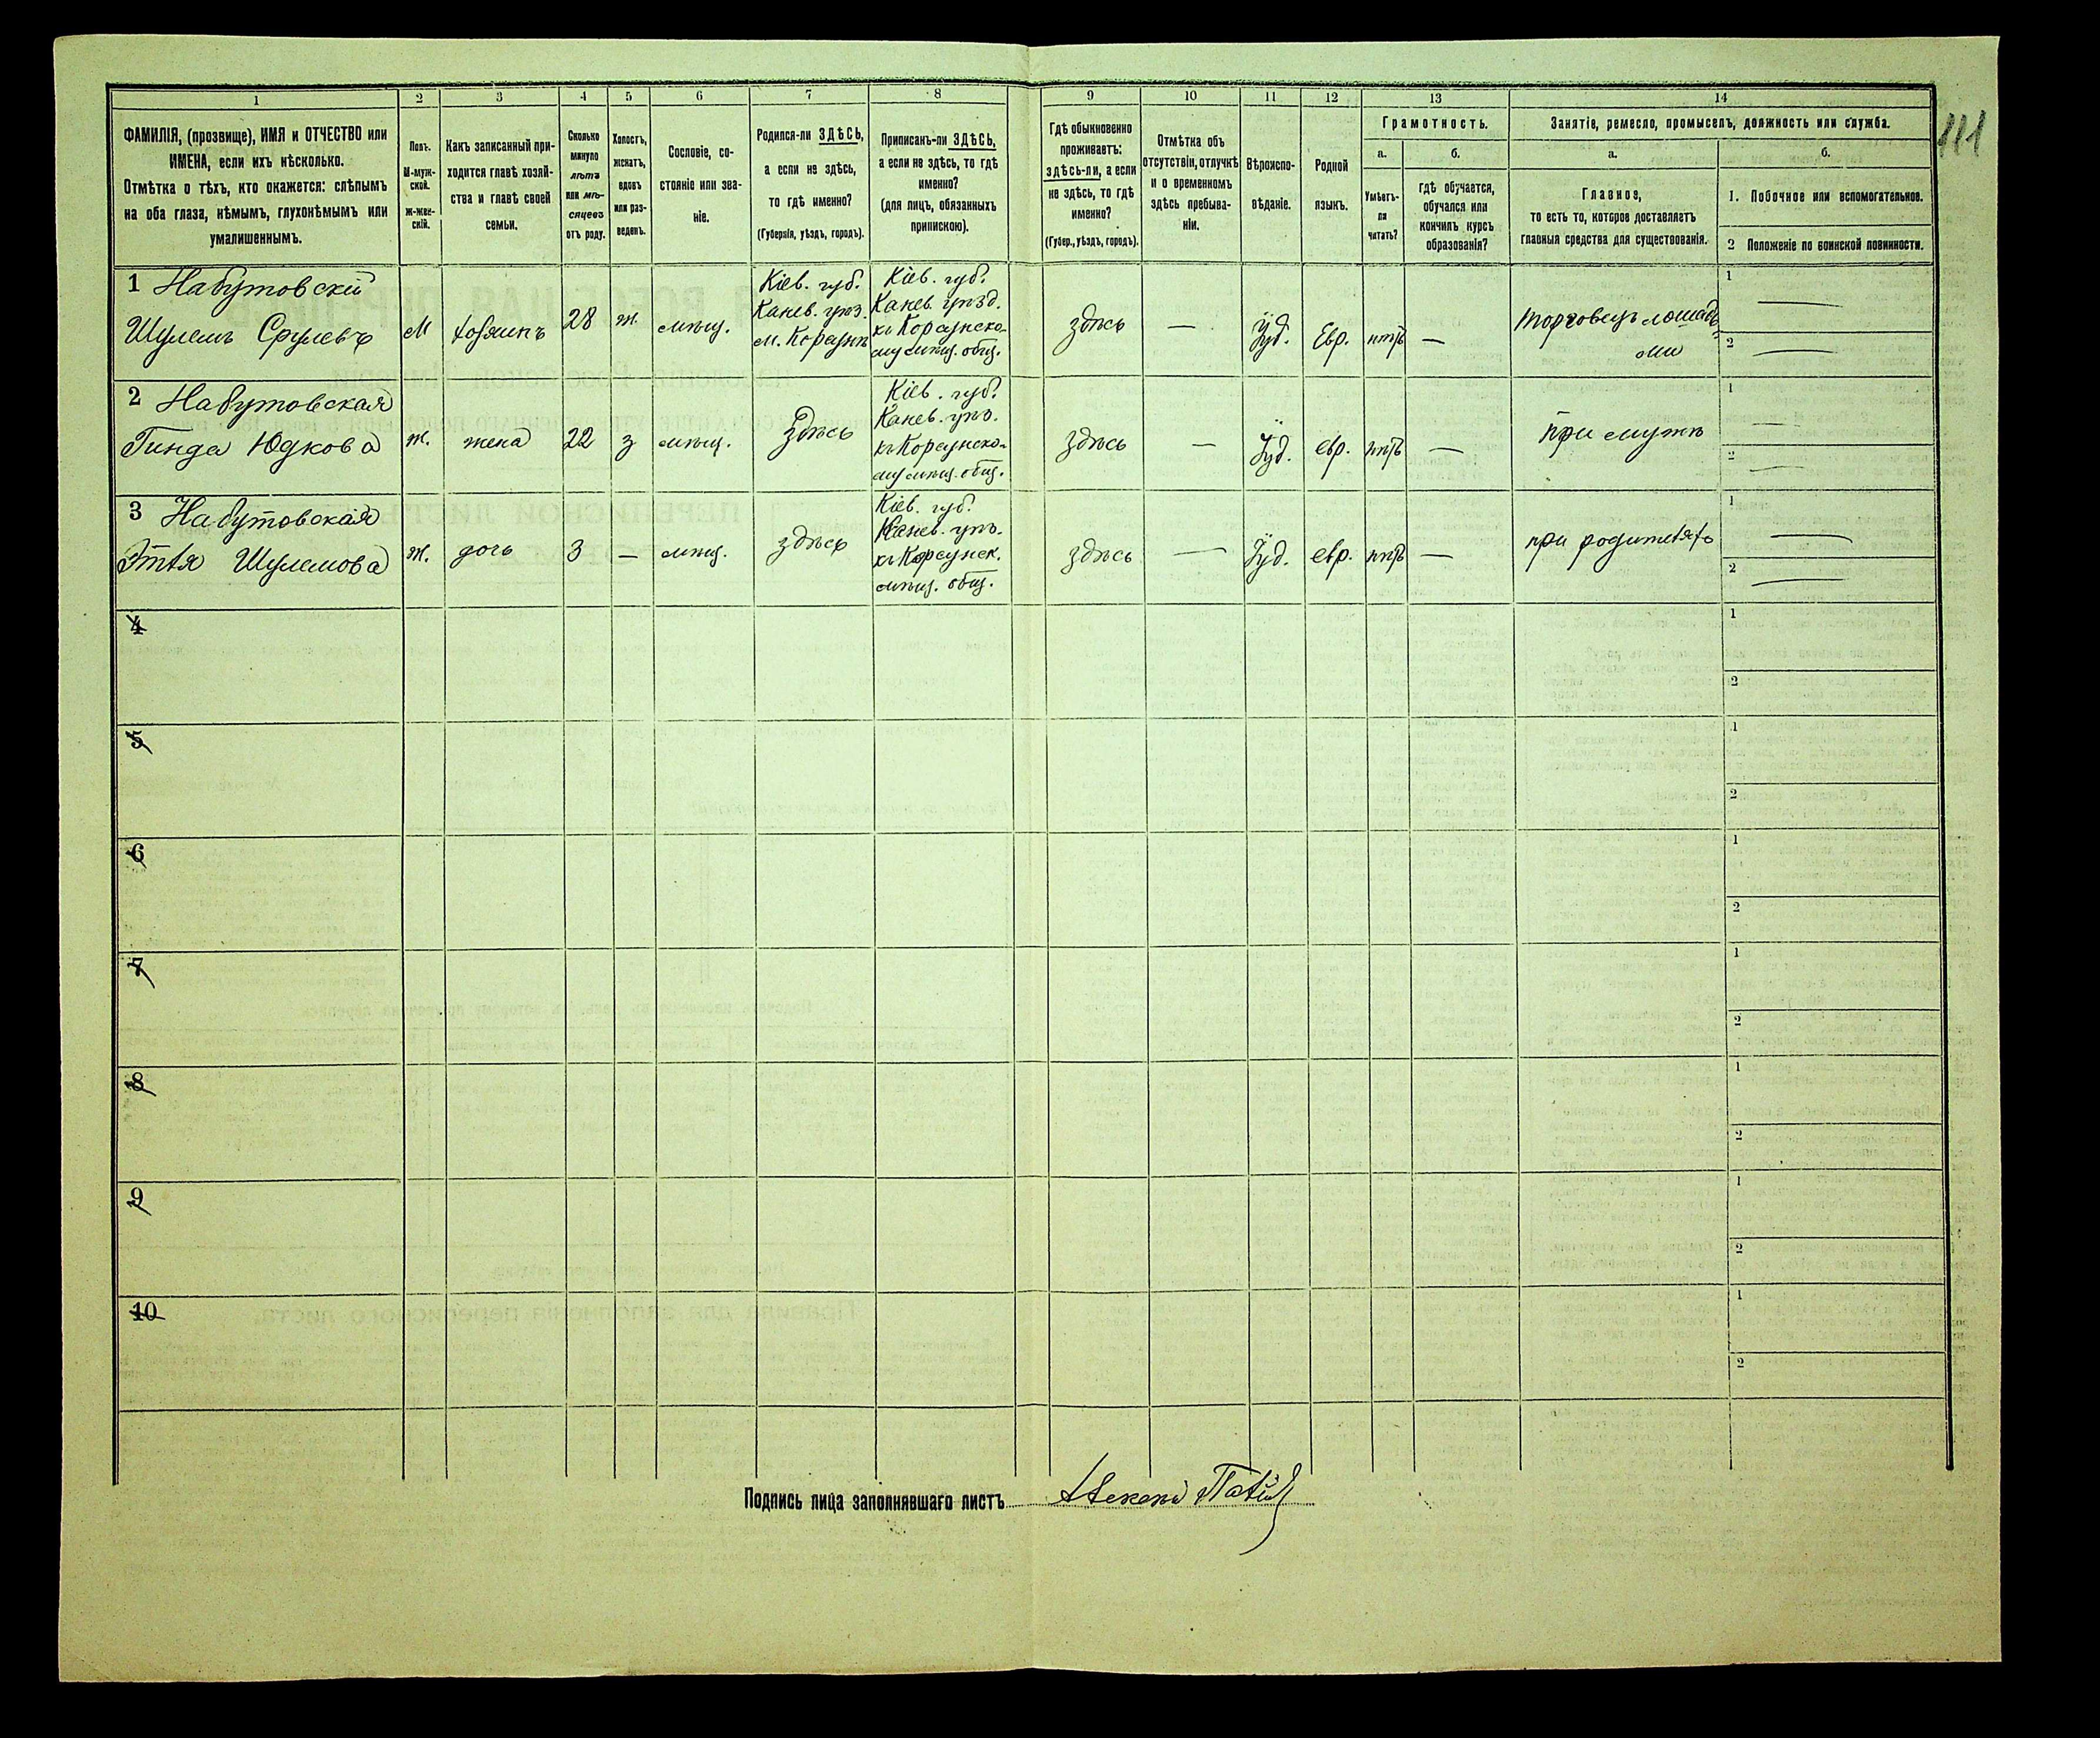 1 2 3 4 5 6 7 8 9 10 11 12 13 14
111
ФАМИЛІЯ, (прозвище), ИМЯ и ОТЧЕСТВО или
ИМЕНА, если ихъ нѣсколько.
Отмѣтка о тѣхъ, кто окажется: слѣпымъ
на оба глаза, нѣмымъ, глухонѣмымъ или
умалишеннымъ.
Полъ.
М-муж-
ской.
ж-жен-
скій.
Какъ записанный при-
ходится главѣ хозяй-
ства и главѣ своей
семьи.
Сколько
минуло
лѣтъ
или мѣ-
сяцевъ
отъ роду.
Холостъ,
женатъ,
вдовъ
или раз-
веденъ.
Сословіе, со-
стояніе или зва-
ніе.
Родился-ли ЗДѢСЬ,
а если не здѣсь,
то гдѣ именно?
(Губернія, уѣздъ, городъ).
Приписанъ-ли ЗДѢСЬ,
а если не здѣсь, то гдѣ
именно?
(для лицъ, обязанныхъ
припискою).
Гдѣ обыкновенно
проживаетъ:
здѣсь-ли, а если
не здѣсь, то гдѣ
именно?
(Губер., уѣздъ, городъ).
Отмѣтка объ
отсутствіи, отлучкѣ
и о временномъ
здѣсь пребыва-
ніи.
Вѣроиспо-
вѣданіе.
Родной
языкъ.
Грамотность.
а.
Умѣетъ-
ли
читать?
б.
гдѣ обучается,
обучался или
кончилъ курсъ
образованія?
Занятіе, ремесло, промыселъ, должность или служба.
а.
Главное,
то есть то, которое доставляетъ
главныя средства для существованія.
б.
1. Побочное или вспомогательное.
2 Положеніе по воинской повинности.
1 Набутовскій
Шулемъ Срулевъ
М
хозяинъ
28
ж.
мѣщ.
Кіев. губ.
Канев. уѣз.
м. Корсунь
Кіев. губ.
Канев. уѣзд.
къ Корсунско-
му мѣщ. общ.
здѣсь
—
Іуд.
Евр.
нѣтъ
—
Торговецъ лошадь-
ми
1 —
2 —
2 Набутовская
Гинда Юдкова
ж.
жена
22
з
мѣщ.
Здѣсь
Кіев. губ.
Канев. уѣз.
къ Корсунско-
му мѣщ. общ.
здѣсь
—
Іуд.
евр.
нѣтъ
—
При мужѣ
1 —
2 —
3 Набутовская
Этля Шулемова
ж.
дочь
3
—
мѣщ.
здѣсь
Кіев. губ.
Канев. уѣз.
къ Корсунск.
мѣщ. общ.
здѣсь
—
Іуд.
евр.
нѣтъ
—
при родителяхъ
1 —
2 —
4
1
2
5
1
2
6
1
2
7
1
2
8
1
2
9
1
2
10
1
2
Подпись лица заполнявшаго листъ